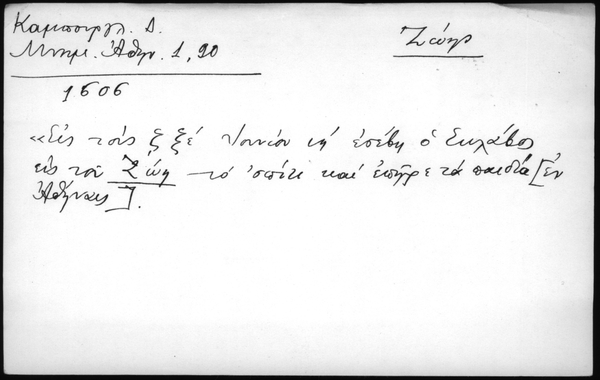 Καμπουργλ. Δ.
Μνημ. Ἀθην. 1, 90
Ζώης
1606
«Εἰς τοὺς Ἰουνίου ἐπέβη ὁ Σκλάβος
εἰς τοῦ Ζώη τὸ ὀσπίτι καὶ ἐπῆρε τὰ παιδιά [ἐν
Ἀθήναις].